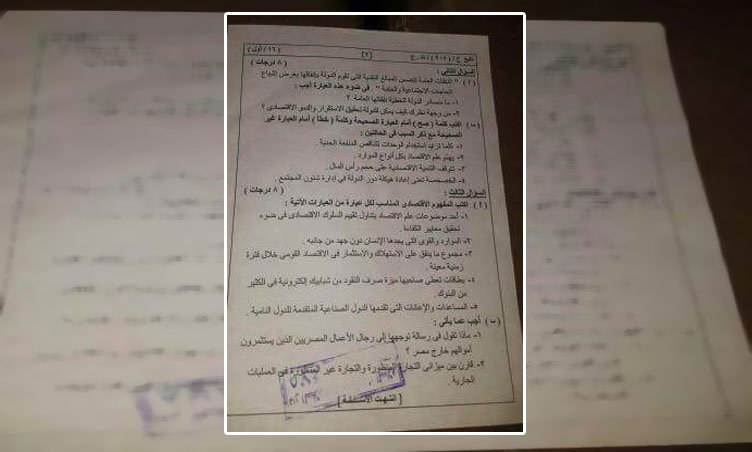 [٢]
(١٦ / أول)
السؤال الثاني : ( ٨ درجات )
( أ ) " النفقات العامة تتضمن المبالغ النقدية التي تقوم الدولة بإنفاقها بغرض إشباع
الحاجات الاجتماعية والعامة " . في ضوء هذه العبارة أجب :
١- ما مصادر الدولة لتغطية نفقاتها العامة ؟
٢- من وجهة نظرك كيف يمكن للدولة تحقيق الاستقرار والنمو الاقتصادي ؟
(ب) اكتب كلمة ( صح ) أمام العبارة الصحيحة وكلمة ( خطأ ) أمام العبارة غير
الصحيحة مع ذكر السبب في الحالتين :
١- كلما تزايد استخدام الوحدات تتناقص المنفعة الحدية .
٢- يهتم علم الاقتصاد بكل أنواع الموارد .
٣- تتوقف التنمية الاقتصادية على حجم رأس المال .
٤- الخصخصة تعني إعادة هيكلة دور الدولة في إدارة شئون المجتمع .
السؤال الثالث : ( ٨ درجات )
( أ ) اكتب المفهوم الاقتصادي المناسب لكل عبارة من العبارات الآتية :
١- أحد موضوعات علم الاقتصاد يتناول تقييم السلوك الاقتصادي في ضوء
تحقيق معايير الكفاءة .
٢- الموارد والقوى التي يجدها الإنسان دون جهد من جانبه .
٣- مجموع ما ينفق على الاستهلاك والاستثمار في الاقتصاد القومي خلال فترة
زمنية معينة .
٤- بطاقات تعطي صاحبها ميزة صرف النقود من شبابيك إلكترونية في الكثير
من البنوك .
٥- المساعدات والإعانات التي تقدمها الدول الصناعية المتقدمة للدول النامية .
(ب) أجب عما يأتي :
١- ماذا تقول في رسالة توجهها إلى رجال الأعمال المصريين الذين يستثمرون
أموالهم خارج مصر ؟
٢- قارن بين ميزاني التجارة المنظورة والتجارة غير المنظورة في العمليات
الجارية .
[ انتهت الأسئلة ]